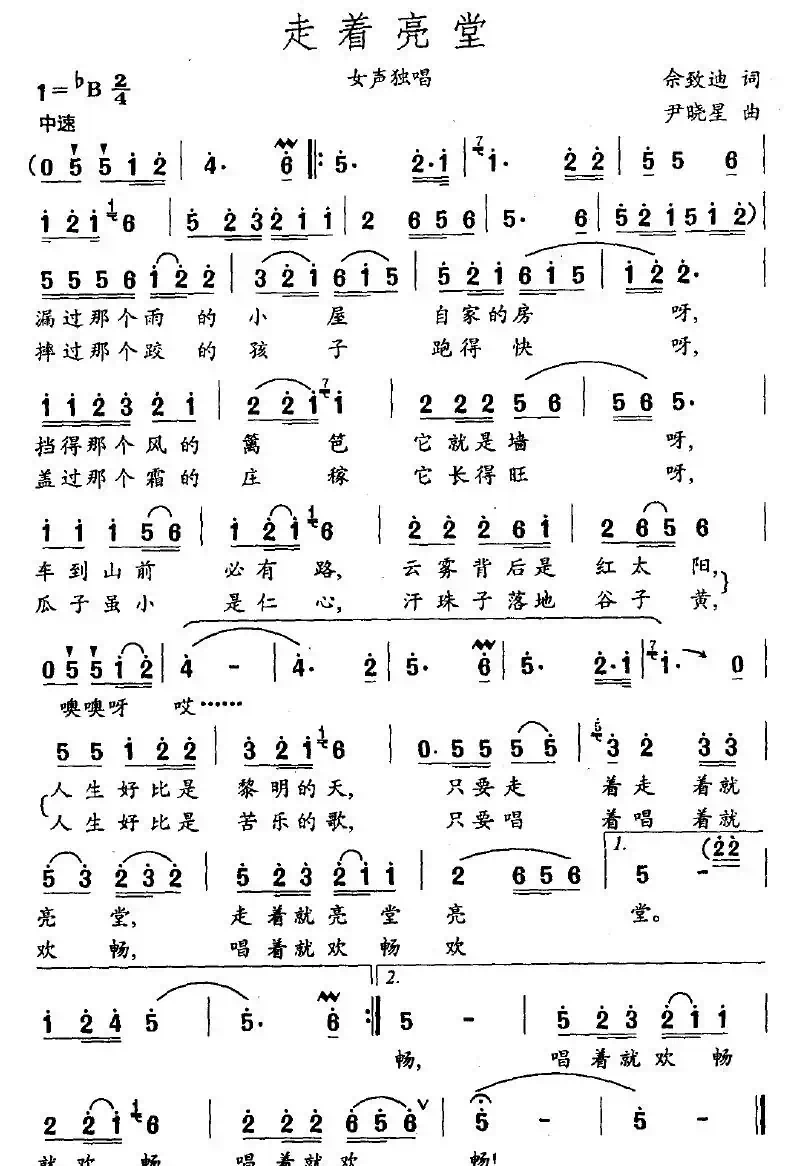 走着亮堂
女声独唱
1=♭B 2/4
佘致迪 词
中速
尹晓星 曲
(0 5 5 1 2 | 4· 6 |: 5· 2·1 | 7 1· 2 2 | 5 5 6
1 2 1 1 6 | 5 2 3 2 1 1 | 2 6 5 6 | 5· 6 | 5 2 1 5 1 2) |
5 5 5 6 1 2 2 | 3 2 1 6 1 5 | 5 2 1 6 1 5 | 1 2 2· |
漏过那个雨的小屋 自家的房 呀,
摔过那个跤的孩子 跑得快 呀,
1 1 2 3 2 1 | 2 2 1 7 1 | 2 2 2 5 6 | 5 6 5· |
挡得那个风的篱笆 它就是墙 呀,
盖过那个霜的庄稼 它长得旺 呀,
1 1 1 5 6 | 1 2 1 1 6 | 2 2 2 6 1 | 2 6 5 6 |
车到山前 必有路, 云雾背后是 红太阳,
瓜子虽小 是仁心, 汗珠子落地 谷子黄,
0 5 5 1 2 | 4 - | 4· 2 | 5· 6 | 5· 2·1 | 7 1· 0 |
噢噢呀 哎……
5 5 1 2 2 | 3 2 1 1 6 | 0· 5 5 5 5 | 5 3 2 3 3 |
人生好比是 黎明的天, 只要走 着走 着就
人生好比是 苦乐的歌, 只要唱 着唱 着就
5 3 2 3 2 | 5 2 3 2 1 1 | 2 6 5 6 | 1. 5 - (2 2 |
亮 堂, 走着就亮堂亮 堂。
欢 畅, 唱着就欢畅欢
1 2 4 5 | 5· 6 :| 2. 5 - | 5 2 3 2 1 1 |
畅, 唱着就欢畅
2 2 1 1 6 | 2 2 2 6 5 6 ∨ | 5 - | 5 - ‖
就欢 畅 唱着就欢 畅!